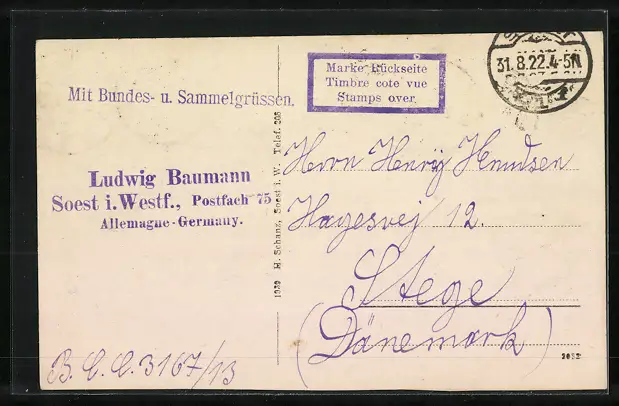 31.8.22.4-5N
Marke Rückseite
Timbre cote vue
Stamps over.
Mit Bundes- u. Sammelgrüssen.
Ludwig Baumann
Soest i. Westf., Postfach 75
Allemagne-Germany.
1939 H. Schanz, Soest i. W. Telef. 305
Herrn Henry Knudsen
Hagesvej 12.
Stege
(Dänemark)
B.C.C. 3167/13
2032